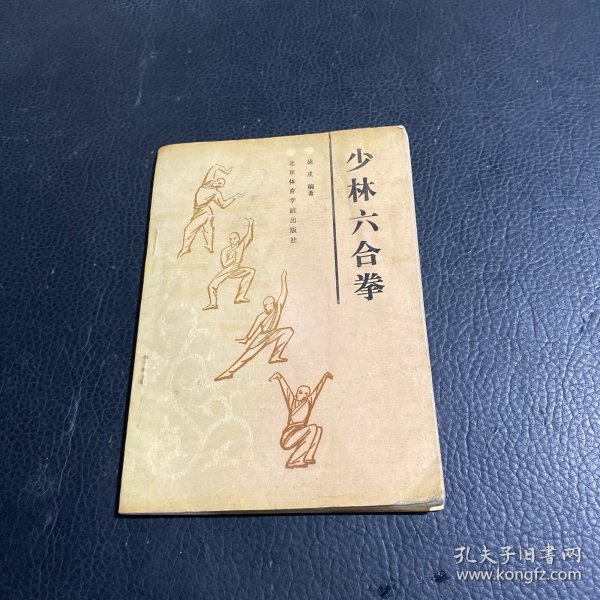 少林六合拳
德虔 编著
北京体育学院出版社
孔夫子旧书网
www.kongfz.com